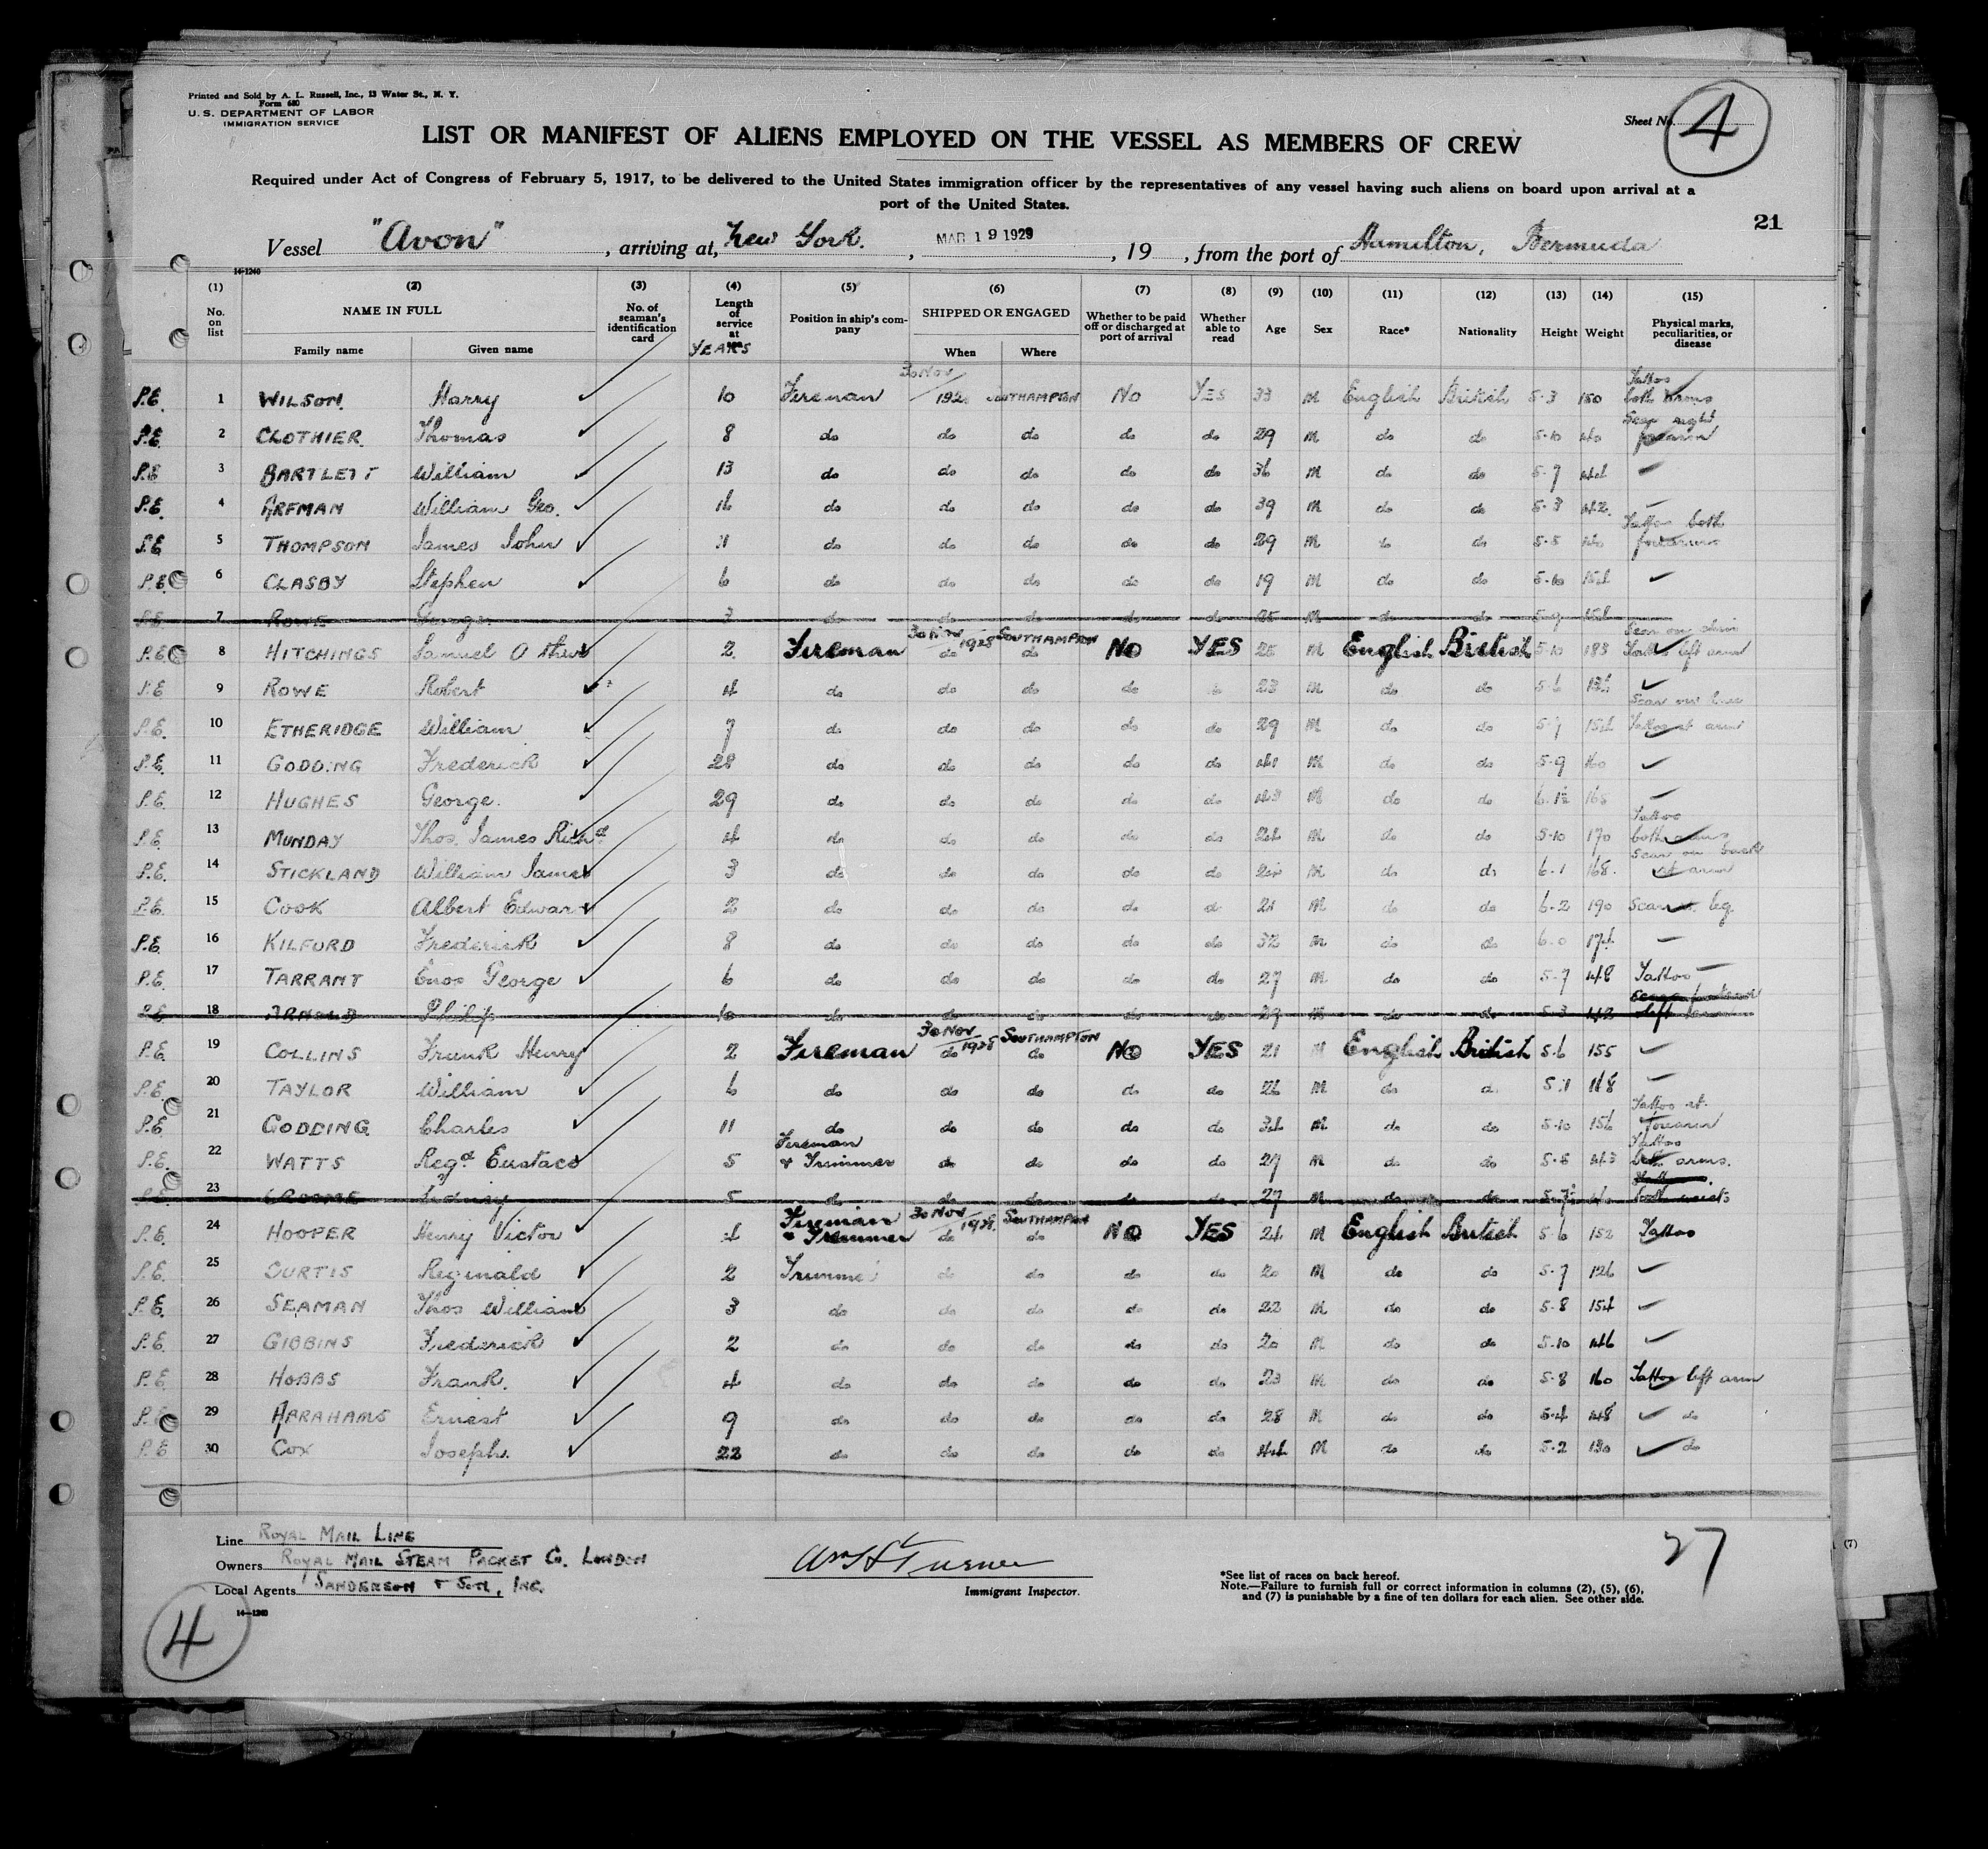 Printed and Sold by A. L. Russell, Inc., 13 Water St., N. Y.
Form 680
U. S. DEPARTMENT OF LABOR
IMMIGRATION SERVICE
Sheet No. 4
LIST OR MANIFEST OF ALIENS EMPLOYED ON THE VESSEL AS MEMBERS OF CREW
Required under Act of Congress of February 5, 1917, to be delivered to the United States immigration officer by the representatives of any vessel having such aliens on board upon arrival at a
port of the United States.
21
Vessel "Avon", arriving at, New York. , MAR 19 1929 , 19 , from the port of Hamilton, Bermuda
14-1240
(1) (2) (3) (4) (5) (6) (7) (8) (9) (10) (11) (12) (13) (14) (15)
No. on list
NAME IN FULL
Family name
Given name
No. of seaman's identification card
Length of service at
YEARS
Position in ship's company
SHIPPED OR ENGAGED
When
Where
Whether to be paid off or discharged at port of arrival
Whether able to read
Age
Sex
Race*
Nationality
Height
Weight
Physical marks, peculiarities, or disease
P.E. 1 WILSON. Harry 10 Fireman 30 Nov 192 SOUTHAMPTON No YES 33 M English British 5-3 150 Tattoo both arms
P.E. 2 CLOTHIER. Thomas 8 do do do do do 29 M do do 5-10 Scar right forearm
P.E 3 BARTLETT William 13 do do do do do 36 M do do 5-7
P.E. 4 ARFMAN William Geo. 16 do do do do do 39 M do do 5-8
P.E 5 THOMPSON James John 11 do do do do do 29 M do 5-8 Tattoo both forearms
P.E 6 CLASBY Stephen 6 do do do do do 19 M do do 5-10 154
P.E 7 ROWE George 3 do do do do do 25 M do do 5-9
P.E 8 HITCHINGS Samuel 2 Fireman 30 Nov 1928 do SOUTHAMPTON do No YES M English British 5-10 183 Scar on chin Tattoo left arm
P.E 9 ROWE Robert 4 do do do do do 23 M do do 5-6 136
P.E. 10 ETHERIDGE William 7 do do do do do 29 M do do 5-7 154 Tattoo rt arm
P.E. 11 GODDING Frederick 28 do do do do do M do do 5-9 160
P.E. 12 HUGHES George. 29 do do do do do M do do
P.E. 13 MUNDAY Thos. James Richd 4 do do do do do 24 M do do 5-10 170 Tattoo both arms
P.E. 14 STICKLAND William James 3 do do do do do M do do 6-1 168. Scar on back rt arm
P.E. 15 COOK Albert Edward 2 do do do do do 21 M do do 6-2 190 leg
P.E. 16 KILFORD Frederick 8 do do do do do 32 M do do 6-0 174
P.E. 17 TARRANT Enos George 6 do do do do do 27 M do do 5-7 148 Tattoo
P.E. 18 ARNOLD Philip 10 do do do do do 29 M do do 5-3 142 left
P.E. 19 COLLINS Frank Henry 2 Fireman 30 Nov 1928 do SOUTHAMPTON do No YES 21 M English British 5-6 155
P.E. 20 TAYLOR William 6 do do do do do 26 M do do 5-1 118
P.E. 21 GODDING Charles 11 do do do do do 34 M do do 5-10 156 Tattoo rt. forearm
P.E. 22 WATTS Regd Eustace 5 Fireman & Trimmer do do do do 27 M do do 5-8 143 Tattoo both arms.
23 Sidney 5 do do do do do 27 M do do
P.E. 24 HOOPER Henry Victor 4 Fireman & Trimmer 30 Nov 1928. do SOUTHAMPTON do No YES 24 M English British 5-6 152 Tattoo
P.E. 25 CURTIS Reginald 2 Trimmer do do do do 20 M do do 5-7 126
P.E. 26 SEAMAN Thos William 3 do do do do do 22 M do do 5-8 154
P.E. 27 GIBBINS Frederick 2 do do do do do 20 M do do 5-10 146
P.E. 28 HOBBS Frank. 4 do do do do do 23 M do do 5-8 160 Tattoo left arm
P.E 29 ABRAHAMS Ernest 9 do do do do do 28 M do do 5-4 148 do
P.E 30 COX Joseph. 22 do do do do do 44 M do do 5-2 130 do
Line ROYAL MAIL LINE
Owners ROYAL MAIL STEAM PACKET Co. LONDON
Local Agents SANDERSON & SON, INC.
14—1240
Wm H Turner
Immigrant Inspector.
*See list of races on back hereof.
Note.—Failure to furnish full or correct information in columns (2), (5), (6),
and (7) is punishable by a fine of ten dollars for each alien. See other side.
27
4
(7)